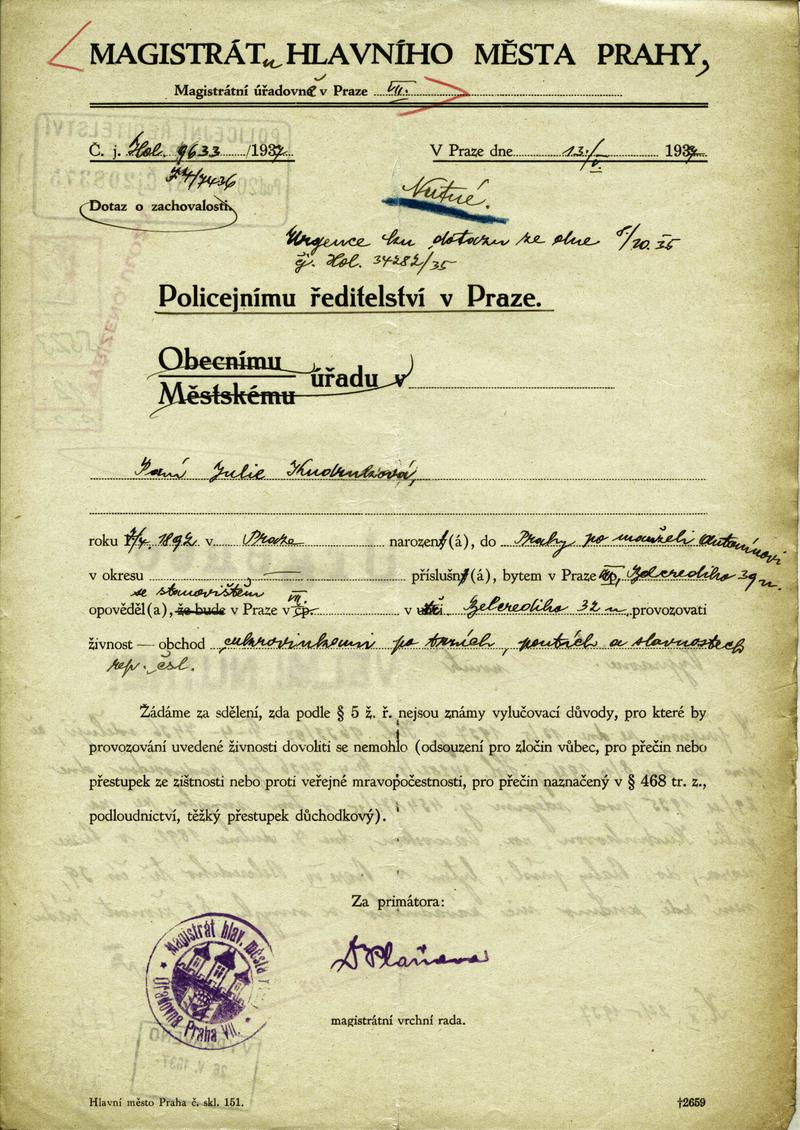 MAGISTRÁTu HLAVNÍHO MĚSTA PRAHY,
Magistrátní úřadovně v Praze VII.
Č. j. Hol. 9633 /1937
V Praze dne 13./V. 1937
74/7436
Dotaz o zachovalosti.
Nutné.
Urgence ku dotazu ze dne 8/10. 35
čj. Hol. 34282/35
Policejnímu ředitelství v Praze.
Obecnímu
Městskému úřadu v
Paní Julie Kudrnková,
roku 7/4. 1892 v Praze narozen(á), do Prahy po manželi Antonínovi
v okresu — příslušn(á), bytem v Praze VII., Belcrediho 39 n.
se stanovištěm
opověděl(a), že bude v Praze VII. v čp. v ulici Belcrediho 32 n. provozovati
živnost — obchod cukrovinkami po trzích, poutích a slavnostech
rep. čsl.
Žádáme za sdělení, zda podle § 5 ž. ř. nejsou známy vylučovací důvody, pro které by
provozování uvedené živnosti dovoliti se nemohlo (odsouzení pro zločin vůbec, pro přečin nebo
přestupek ze zištnosti nebo proti veřejné mravopočestnosti, pro přečin naznačený v § 468 tr. z.,
podloudnictví, těžký přestupek důchodkový).
Za primátora:
Magistrát hlav. města
Úřadovna Praha VII.
magistrátní vrchní rada.
Hlavní město Praha č. skl. 151.
†2659